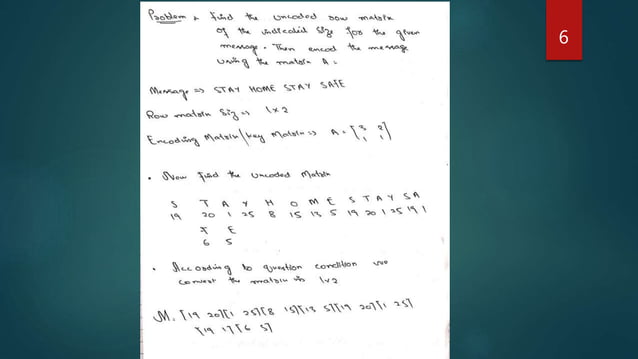 6
Problem:- Find the uncoded row matrix
of the indicated size for the given
message. Then encod the message
using the matrix A =
Message => STAY HOME STAY SAFE
Row matrix Siz => 1x2
Encoding Matrix/Key Matrix => A = [3 2
1 1]
• Now find the uncoded Matrix
S T A Y H O M E S T A Y S A
19 20 1 25 8 15 13 5 19 20 1 25 19 1
F E
6 5
• According to question condition we
convert the matrix in 1x2
M. [19 20][1 25][8 15][13 5][19 20][1 25]
[19 1][6 5]